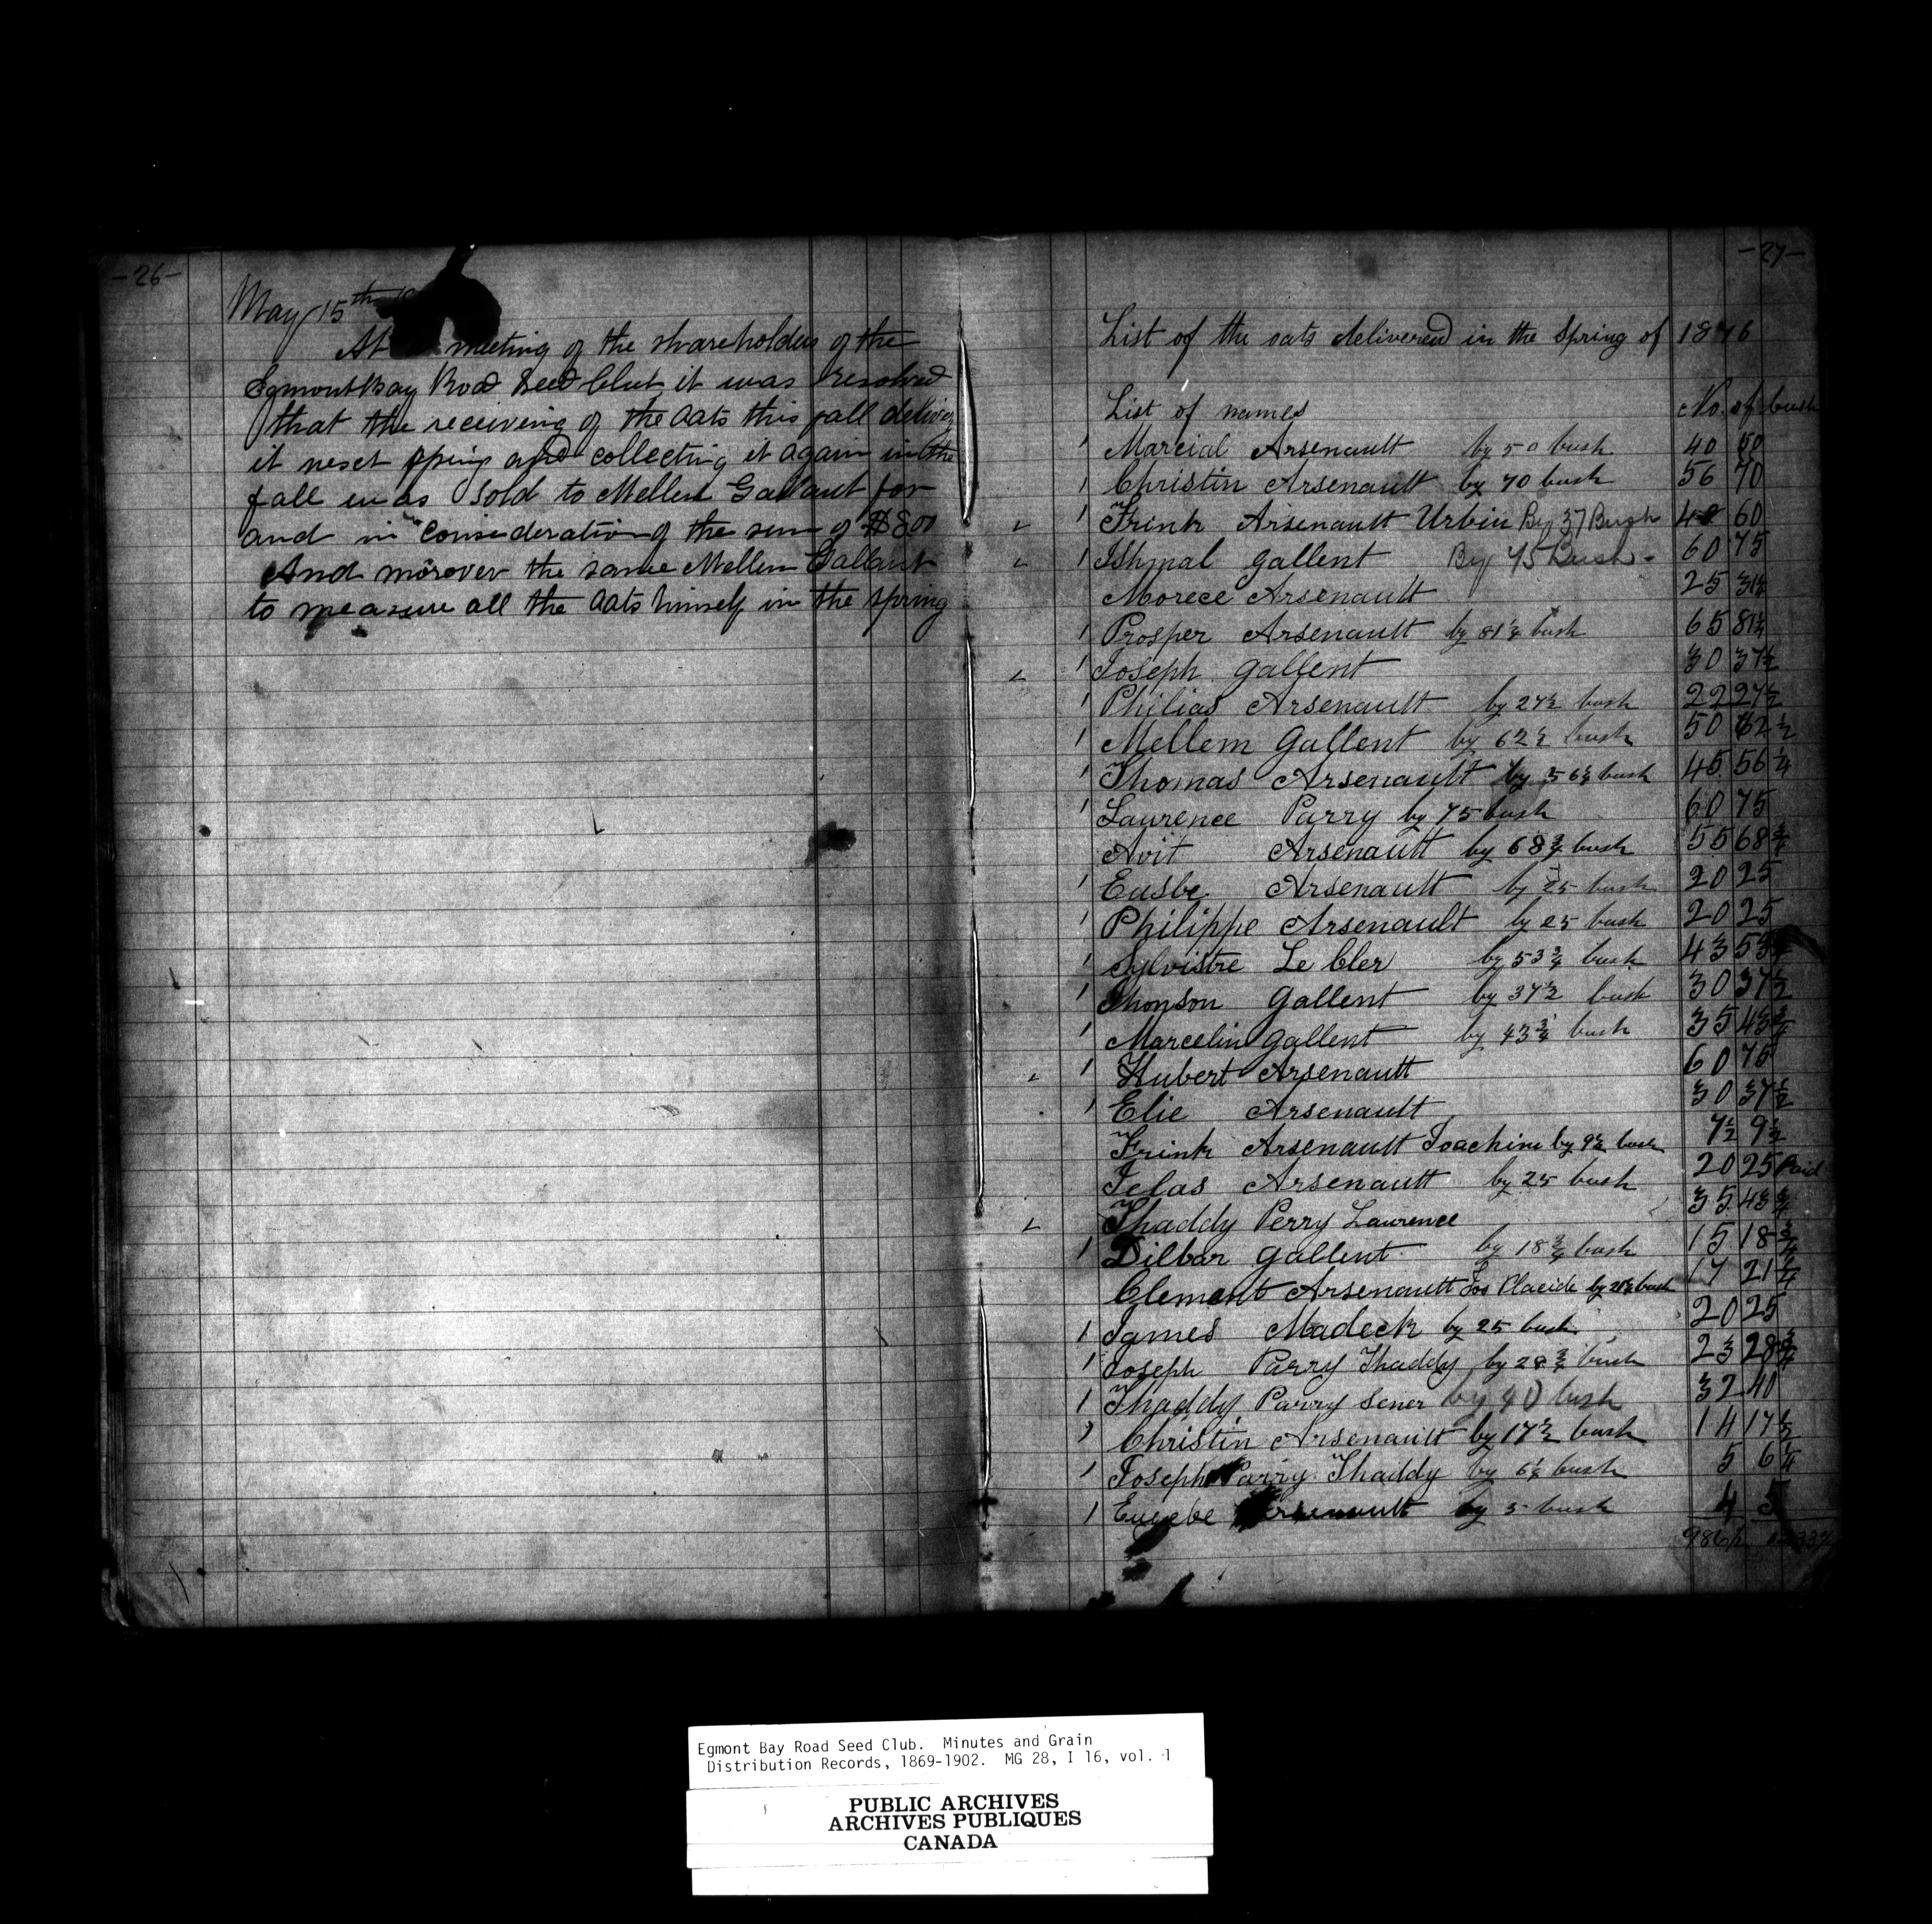 -26-
May 15th
At meeting of the shareholders of the
Egmont Bay Road Seed Club it was resolved
that the receiving of the oats this fall deliver
it nest spring and collecting it again in the
fall was sold to Mellem Gallant for
and in consideration of the sum of $800
And morover the same Mellem Gallant
to measure all the oats himself in the spring
-27-
List of the oats delivered in the Spring of 1876
List of names No. of bush
' Marcial Arsenault by 50 bush 40 50
' Christin Arsenault by 70 bush 56 70
' Frink Arsenault Urbin By 37 Bush 48 60
' Ishmal Gallent By 75 Bush - 60 75
Morece Arsenault 25 31¼
' Prosper Arsenault by 81¼ bush 65 81¼
' Joseph Gallent 30 37½
' Philias Arsenault by 27½ bush 22 27½
' Mellem Gallent by 62½ bush 50 62½
' Thomas Arsenault by 56¼ bush 45 56¼
' Laurence Parry by 75 bush 60 75
Avit Arsenault by 68¾ bush 55 68¾
' Eusbe Arsenault by 25 bush 20 25
' Philippe Arsenault by 25 bush 20 25
' Sylvistre Le Cler by 53¾ bush 43 53¾
' Thonson Gallent by 37½ bush 30 37½
' Marcelin Gallent by 43¾ bush 35 43¾
' Hubert Arsenault 60 75
' Elie Arsenault 30 37½
Frink Arsenault Joachim by 9½ bush 7½ 9½
Jelas Arsenault by 25 bush 20 25 Paid
Thaddy Perry Laurence 35 43¾
' Dilbar Gallent by 18¾ bush 15 18¾
Clement Arsenault Jos Placide by 21¼ bush 17 21¼
' James Madeck by 25 bush 20 25
' Joseph Parry Thaddy by 28¾ bush 23 28¾
' Thaddy Parry Sener by 40 bush 32 40
' Christin Arsenault by 17½ bush 14 17½
' Joseph Parry Thaddy by 6¼ bush 5 6¼
' Eusebe Arsenault by 5 bush 4 5
986½
Egmont Bay Road Seed Club. Minutes and Grain
Distribution Records, 1869-1902. MG 28, I 16, vol. 1
PUBLIC ARCHIVES
ARCHIVES PUBLIQUES
CANADA